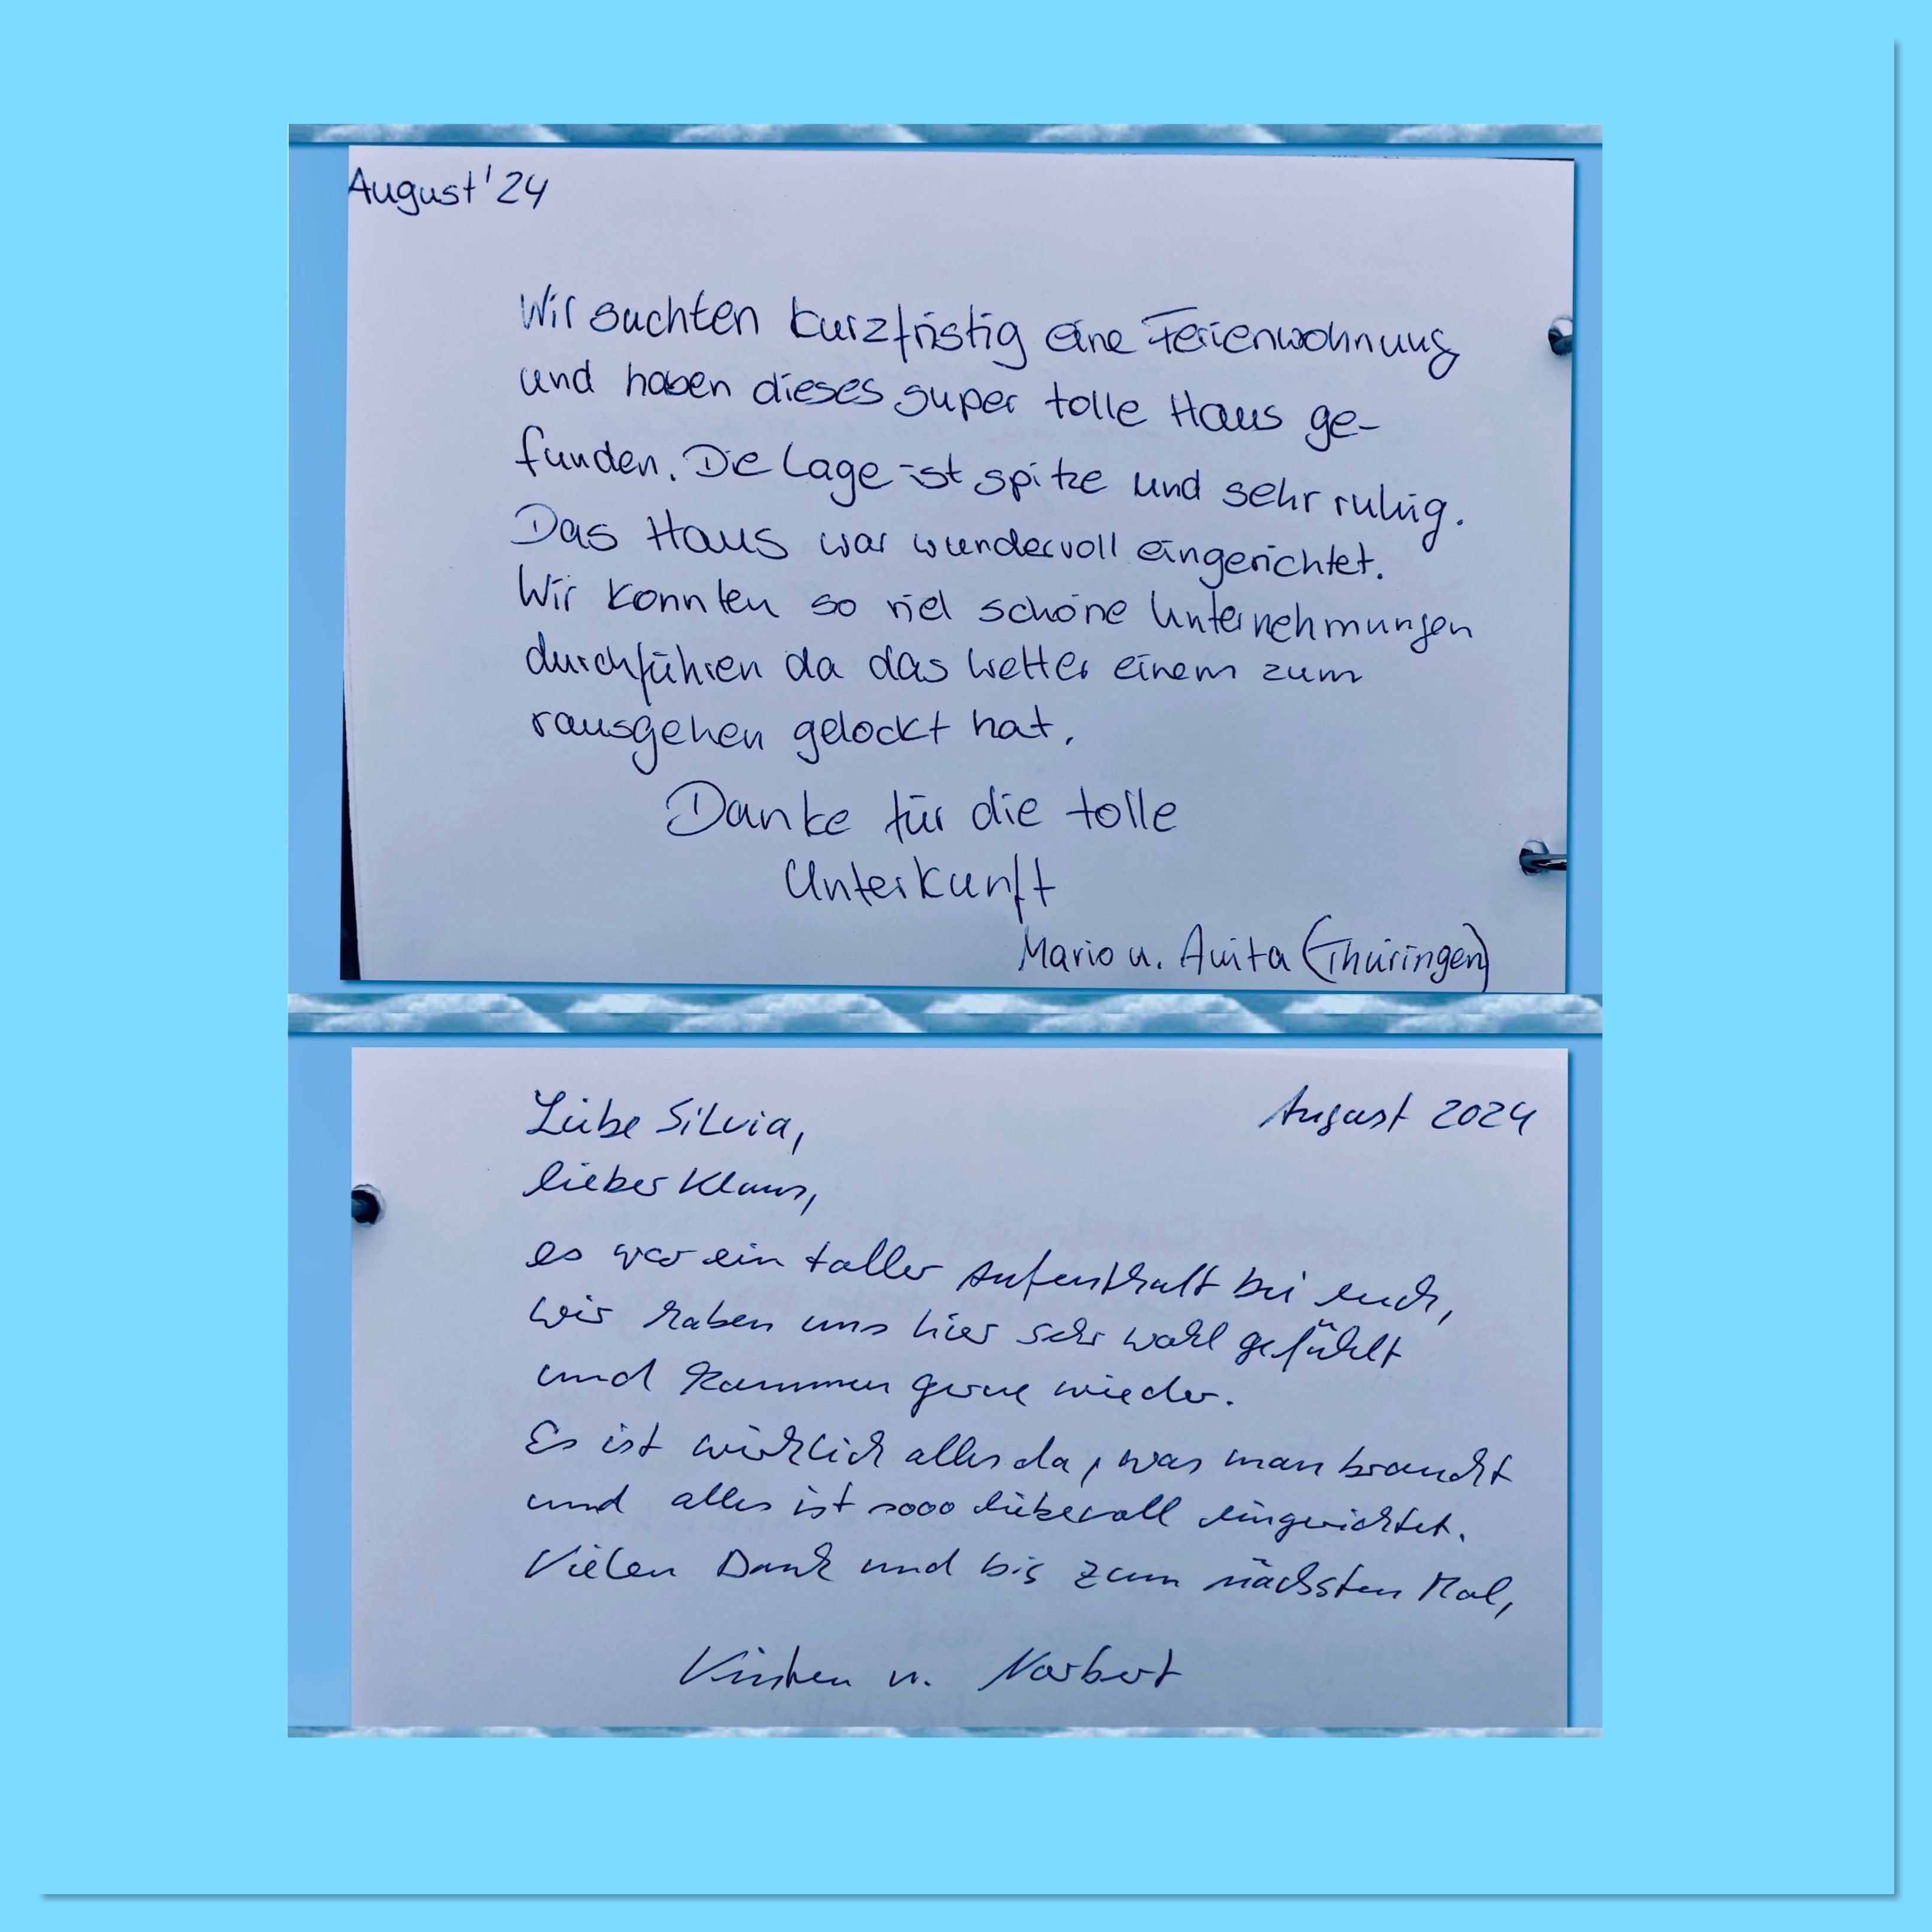 August '24
Wir suchten kurzfristig eine Ferienwohnung
und haben dieses super tolle Haus ge-
funden. Die Lage ist spitze und sehr ruhig.
Das Haus war wundervoll eingerichtet.
Wir konnten so viel schöne Unternehmungen
durchführen da das Wetter einem zum
rausgehen gelockt hat.
Danke für die tolle
Unterkunft
Mario u. Anita (Thüringen)
Liebe Silvia,
August 2024
lieber Klaus,
es war ein toller Aufenthalt bei euch,
wir haben uns hier sehr wohl gefühlt
und kommen gerne wieder.
Es ist wirklich alles da, was man braucht
und alles ist sooo liebevoll eingerichtet.
Vielen Dank und bis zum nächsten Mal,
Kirsten u. Norbert